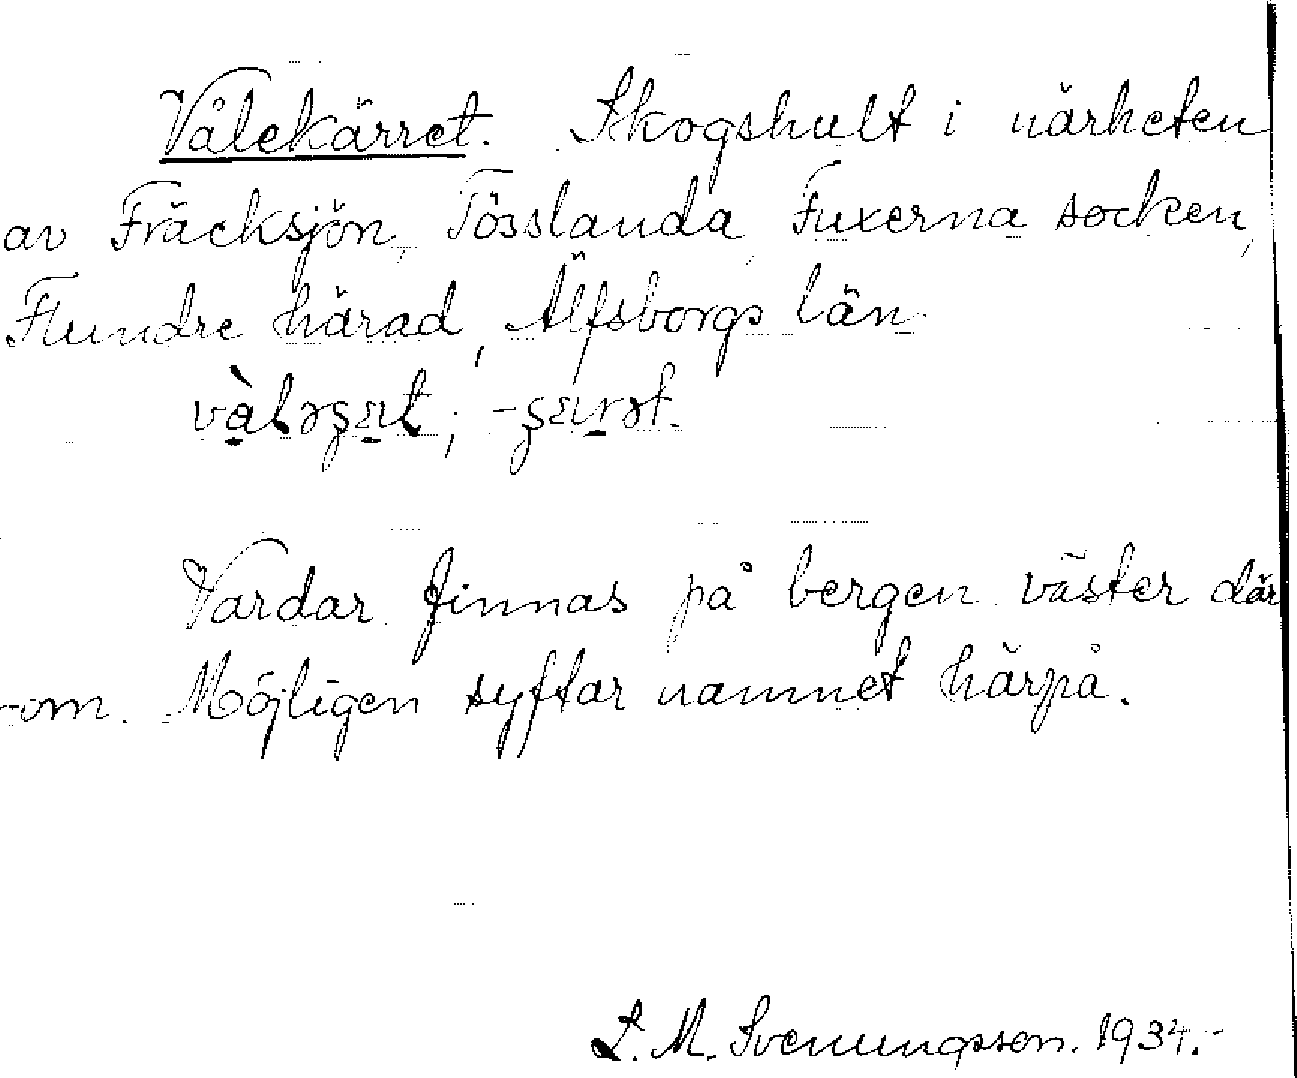 Vålekärret. Skogshult i närheten
av Fräcksjön, Tösslanda, Fuxerna socken,
Flundre härad, Älfsborgs län.
Vardar finnas på bergen väster där
-om. Möjligen syftar namnet härpå.
L. M. Svenungsson. 1934.-